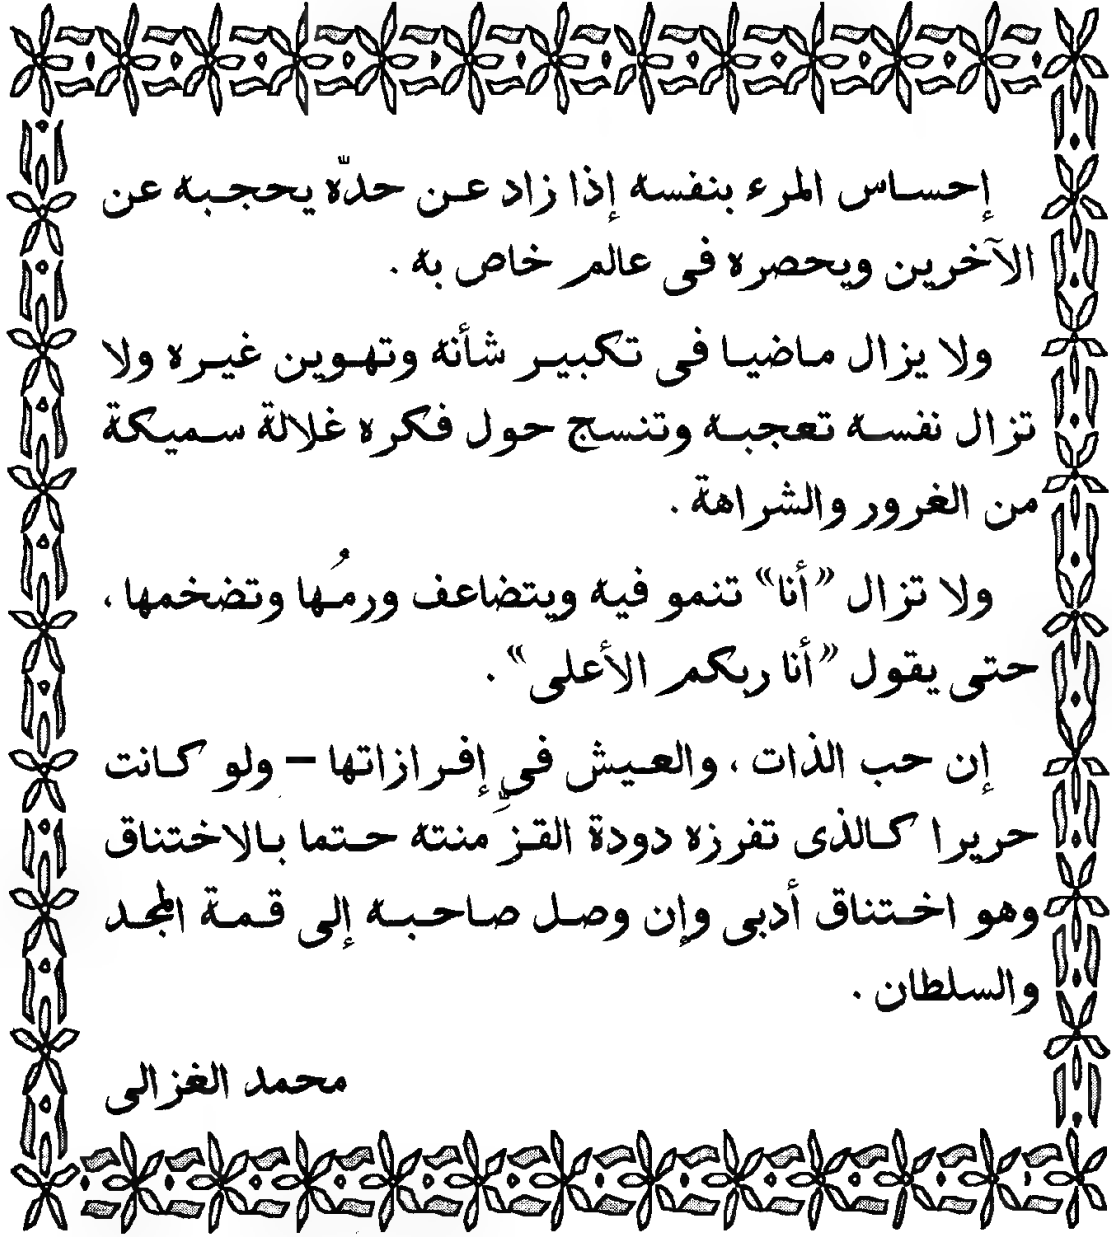 إحساس المرء بنفسه إذا زاد عن حدّه يحجبه عن
الآخرين ويحصره فى عالم خاص به .
ولا يزال ماضيا فى تكبير شأنه وتهوين غيره ولا
تزال نفسه تعجبه وتنسج حول فكره غلالة سميكة
من الغرور والشراهة .
ولا تزال «أنا» تنمو فيه ويتضاعف ورمُها وتضخمها ،
حتى يقول «أنا ربكم الأعلى» .
إن حب الذات ، والعيش فى إفرازاتها – ولو كانت
حريرا كالذى تفرزه دودة القزِّ منته حتما بالاختناق
وهو اختناق أدبى وإن وصل صاحبه إلى قمة المجد
والسلطان .
محمد الغزالى